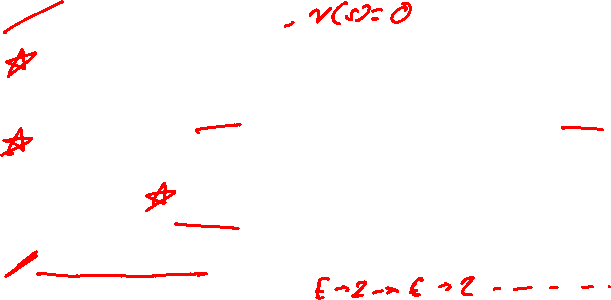 , v(s)=0
E→2→E→2 - - - - -